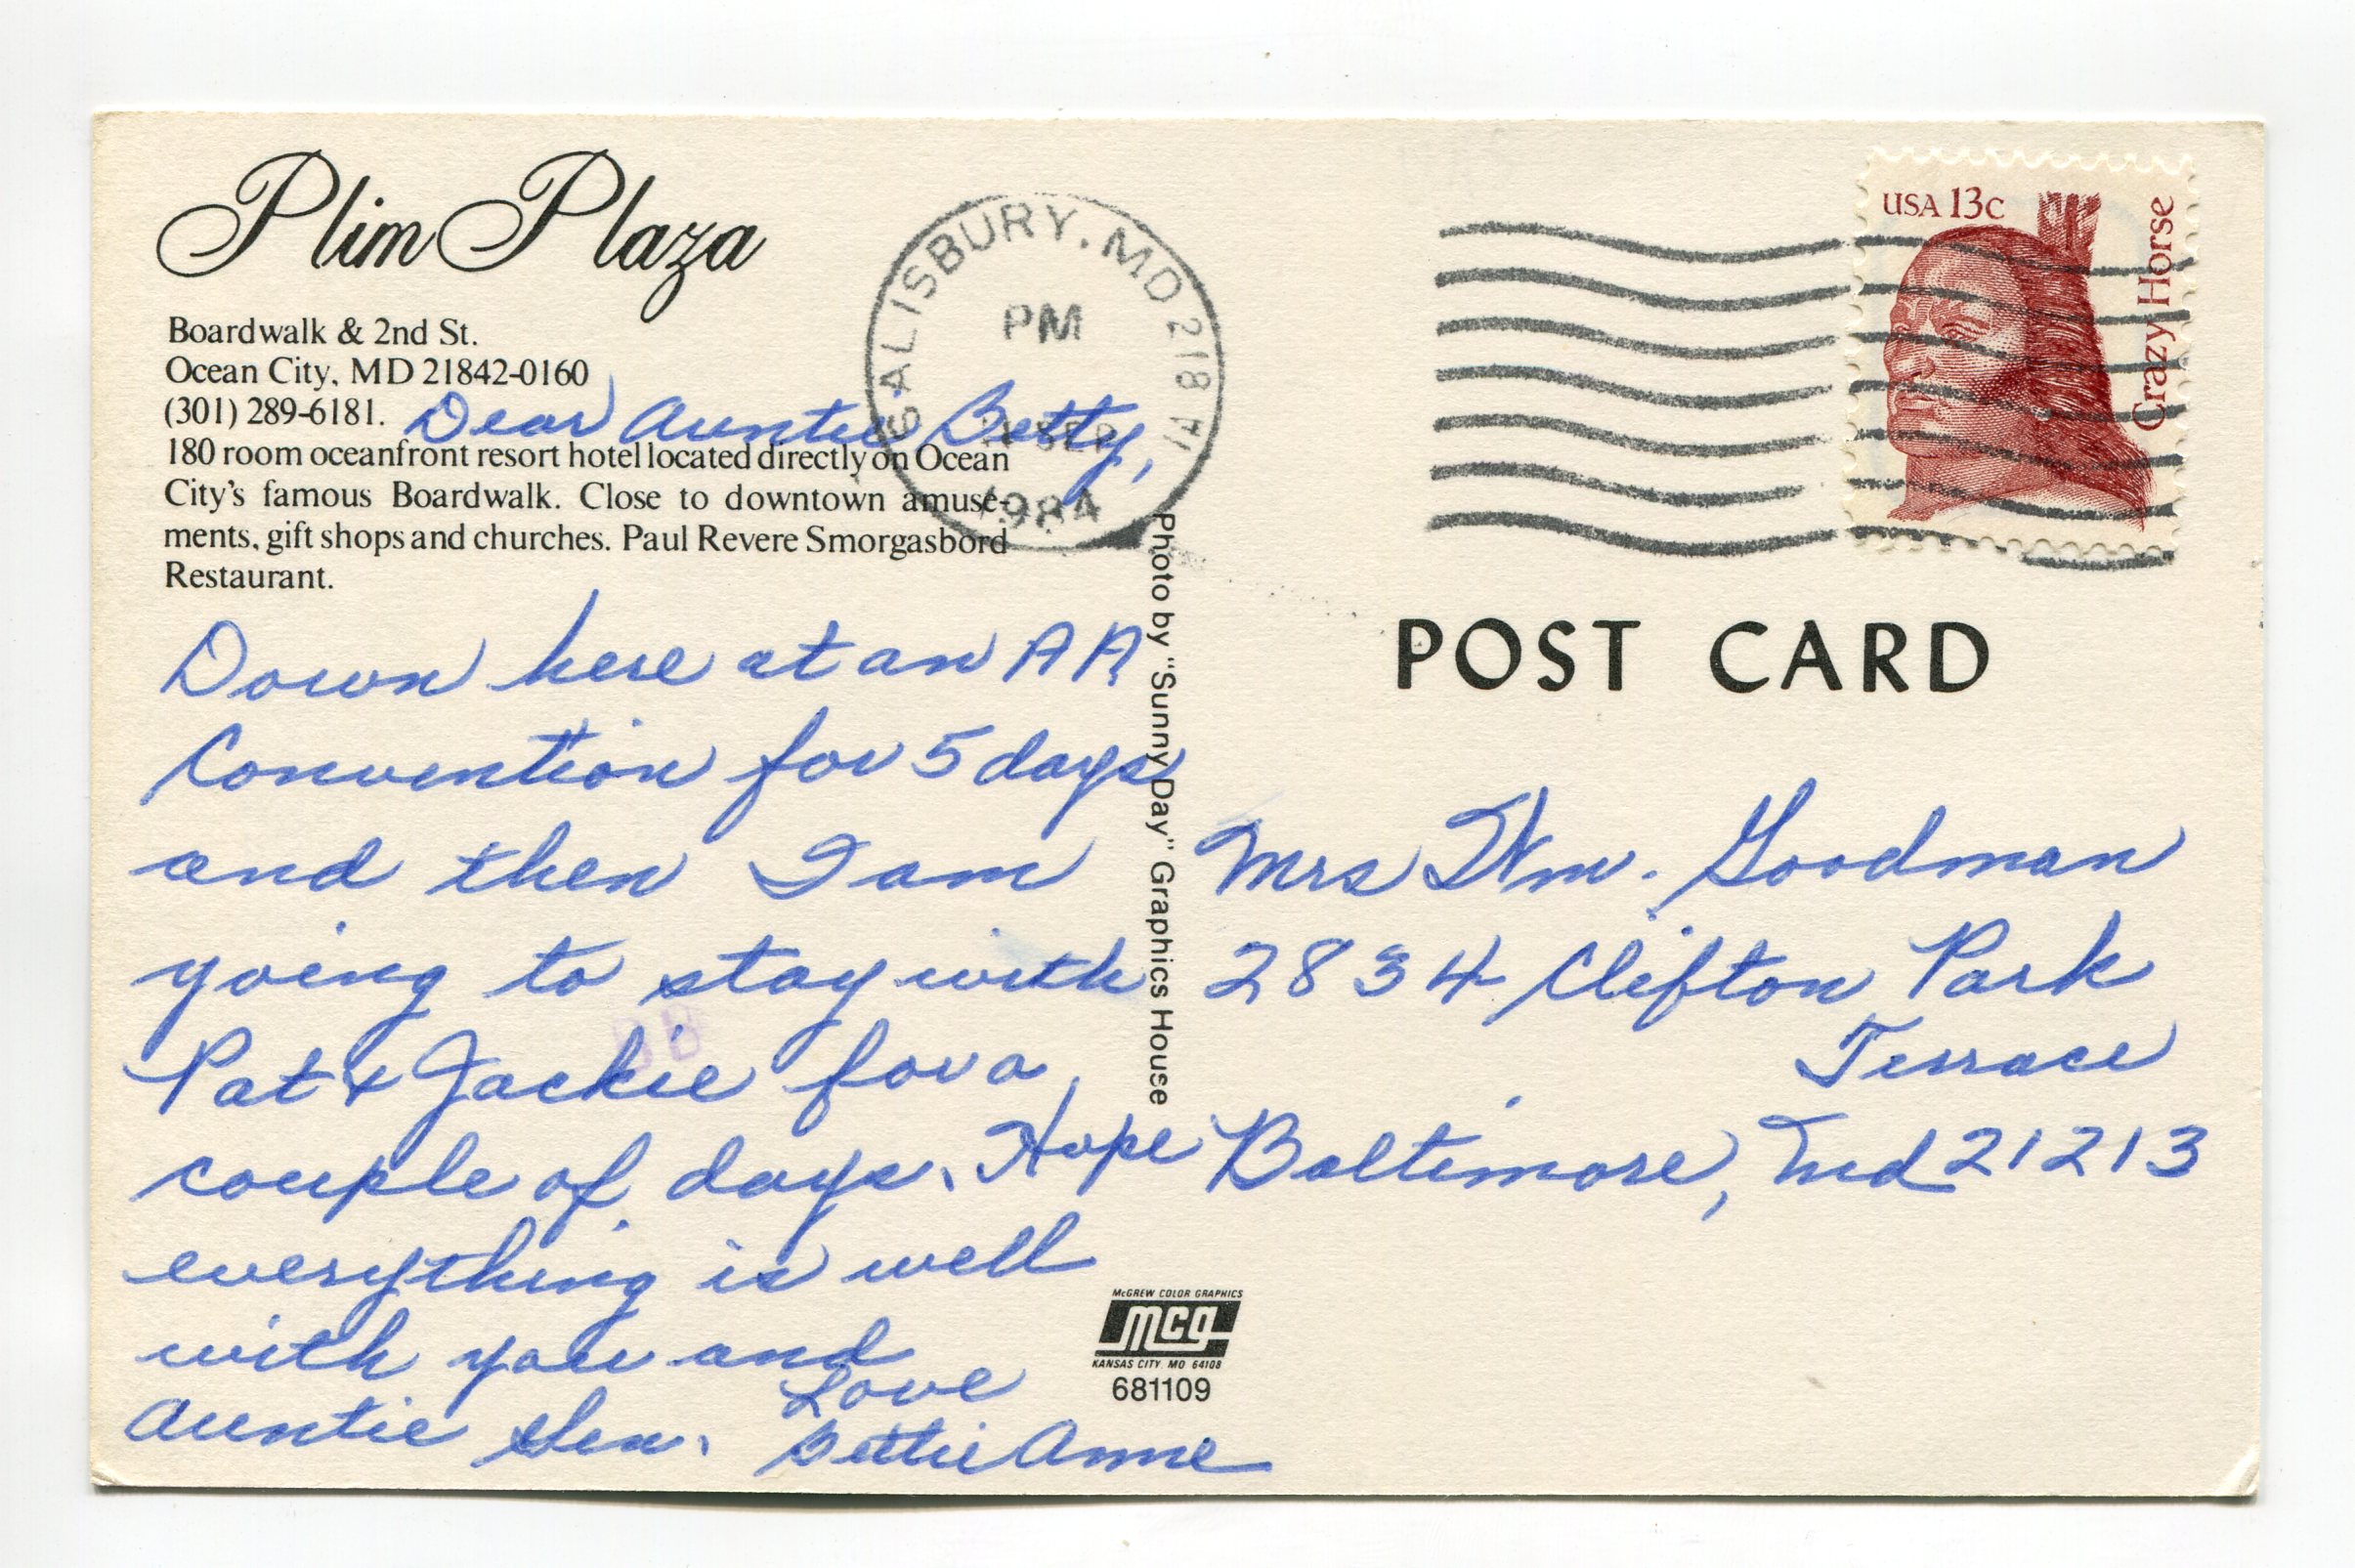 Plim Plaza
Boardwalk & 2nd St.
Ocean City, MD 21842-0160
(301) 289-6181.
180 room oceanfront resort hotel located directly on Ocean
City's famous Boardwalk. Close to downtown amuse-
ments, gift shops and churches. Paul Revere Smorgasbord
Restaurant.
Dear Auntie Betty,
Down here at an AA
Convention for 5 days
and then I am
going to stay with
Pat & Jackie for a
couple of days. Hope
everything is well
with you and
Auntie
Love
Bettie Anne
Photo by "Sunny Day" Graphics House
SALISBURY, MD 218
PM
SEP
1984
USA 13c
Crazy Horse
POST CARD
Mrs Wm. Goodman
2834 Clifton Park
Terrace
Baltimore, Md 21213
McGREW COLOR GRAPHICS
mcg
KANSAS CITY. MO 64108
681109